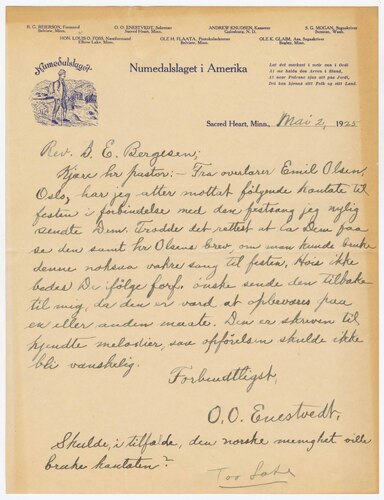 R. G. REIERSON, Formand
Belview, Minn.
O. O. ENESTVEDT, Sekretær
Sacred Heart, Minn.
ANDREW KNUDSEN, Kasserer
Galesburg, N. D.
S. G. MOGAN, Sagaskriver
Bonneau, Wash.
HON. LOUIS O. FOSS, Næstformand
Elbow Lake, Minn.
OLE H. FLAATA, Protokolsekretær
Belview, Minn.
OLE K. GLAIM, Ass. Sagaskriver
Bagley, Minn.
Numedalslaget
Numedalslaget i Amerika
Let det merkast i
At me halda den Arven i Stand,
At
Det kan hjerna vitt Folk og vitt Land.
Sacred Heart, Minn., Mai 2, 1925
Rev. D. E. Bergesen;
Kjære hr pastor:- Fra overlærer Emil Olsen,
Oslo, har jeg atter mottat følgende kantate til
festen i forbindelse med den festsang jeg nylig
sendte Dem. Trodde det rettest at la Dem faa
se den samt hr Olsens brev, om man kunde bruke
denne noksaa vakre sang til festen. Hvis ikke
bedes De ifølge forf. ønske sende den tilbake
til mig, da den er værd at opbevares paa
en eller anden maate. Den er skreven til
kjendte melodier, saa opførelsen skulde ikke
bli vanskelig.
Forbindtligst,
O. O. Enestvedt.
Skulde, i tilfælde, den norske menighet ville
bruke kantaten?
Too Late